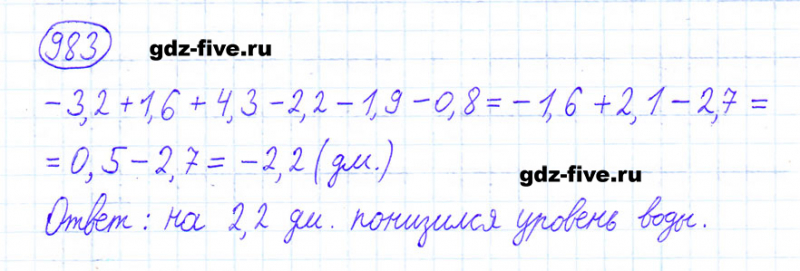 983 gdz-five.ru
-3,2 + 1,6 + 4,3 - 2,2 - 1,9 - 0,8 = -1,6 + 2,1 - 2,7 =
= 0,5 - 2,7 = -2,2 (дм.)
gdz-five.ru
Ответ: на 2,2 дм. понизился уровень воды.